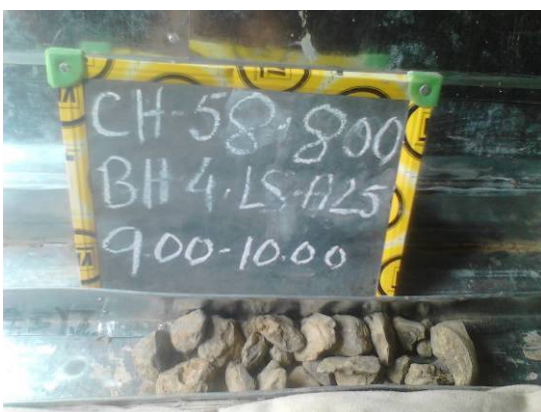 CH-58.800
BH-4.LS-A25
9.00-10.00